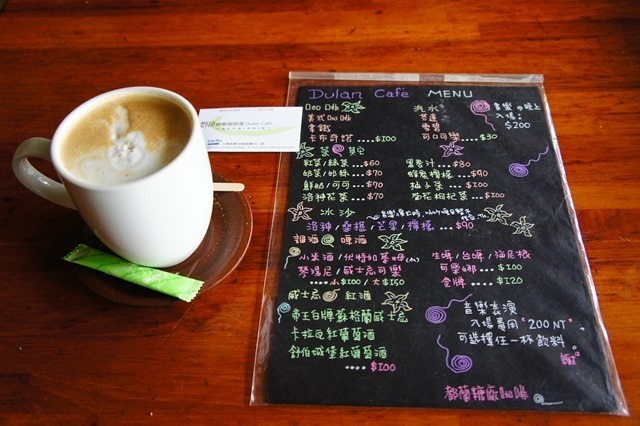 Dulan Café MENU
咖啡
美式咖啡
拿鐵
卡布奇諾 ....$100
茶 其它
紅茶/綠茶 ...$60
奶茶/奶綠 ...$70
鮮奶/可可 ...$70
洛神花茶 ....$70
汽水
芬達
雪碧
可口可樂 ....$30
黑麥汁 ...$80
蜂蜜檸檬 ...$90
柚子茶 ....$100
菊花枸杞茶 ...$100
音樂の晚上
入場:
$200
冰沙
洛神/桑椹/芒果/檸檬 ....$90
調酒 啤酒
小米酒/伏特加萊姆(小)
琴湯尼/威士忌可樂
....小$100/大$150
生啤/台啤/海尼根
可樂娜 ...$100
金牌 ...$120
威士忌 紅酒
帝王白牌蘇格蘭威士忌
卡拉瓦紅葡萄酒
舒伯城堡紅葡萄酒
.... $100
音樂表演
入場費用 "200 NT"
可選擇任一杯飲料
謝²
都蘭糖廠咖啡
Dulan Café